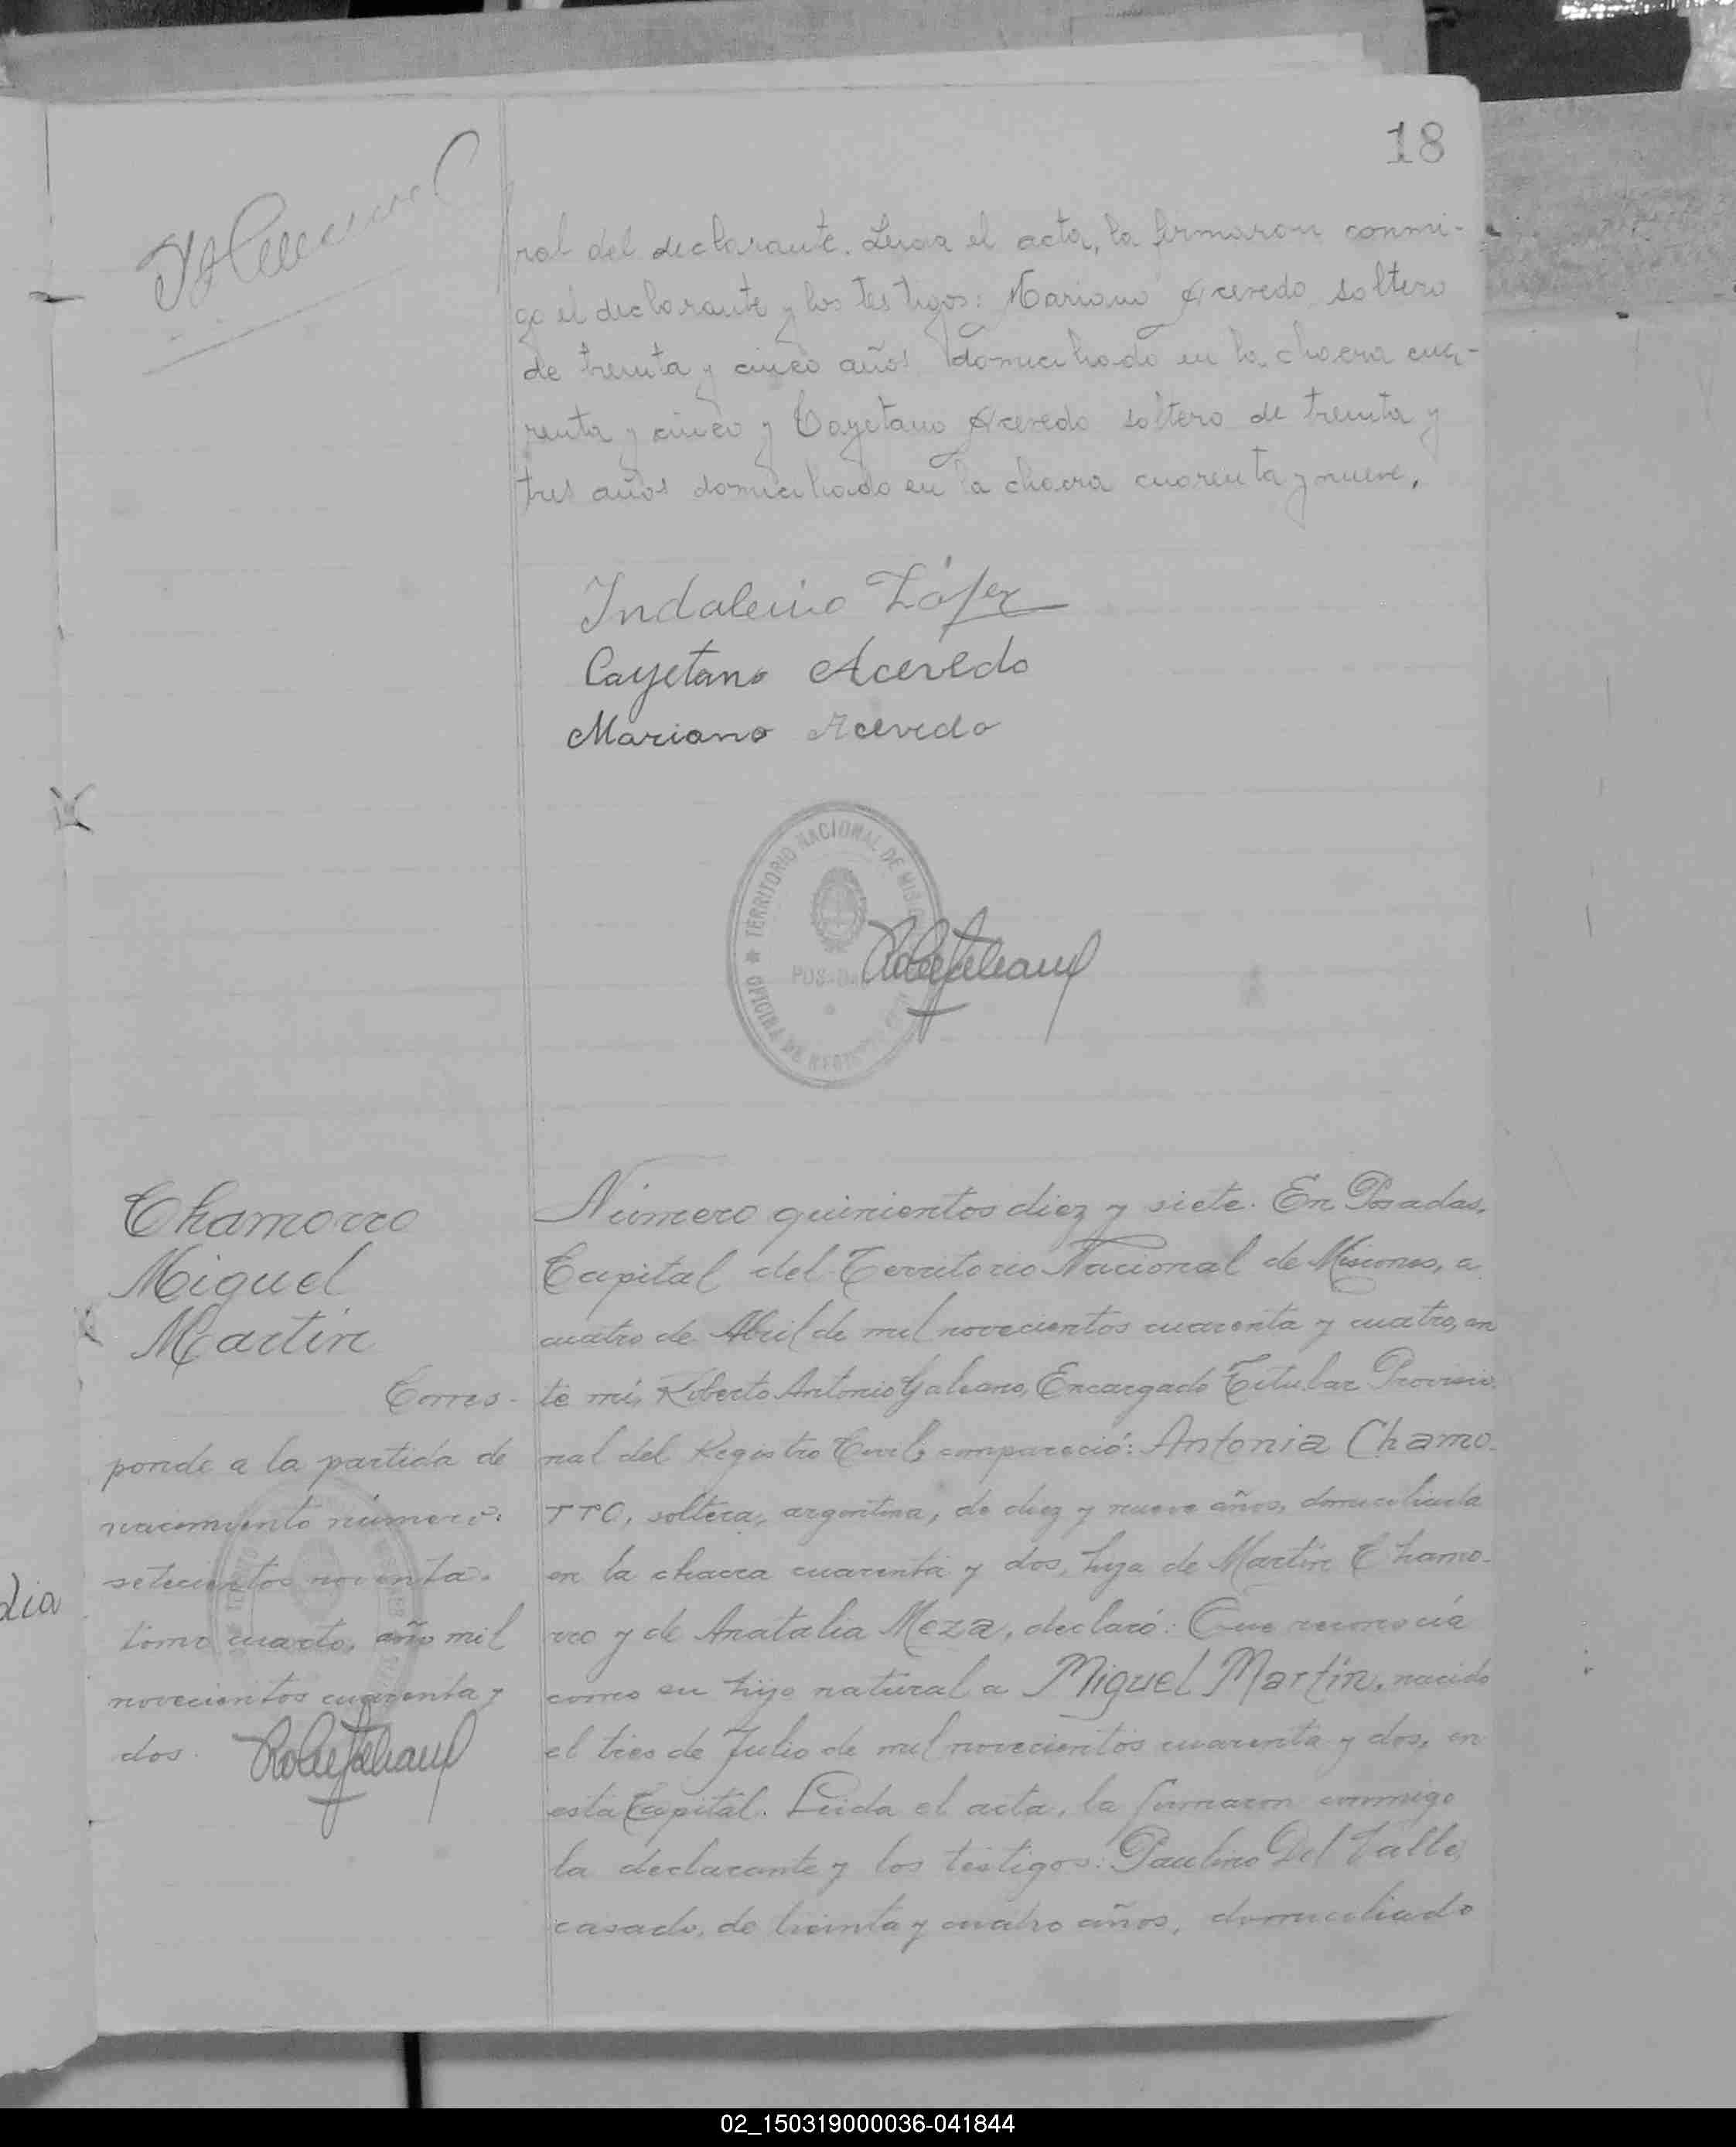 18
ral del declarante. Leida el acta, la firmaron conmi-
go el declarante y los testigos: Mariano Acevedo soltero
de treinta y cinco años domiciliado en la chacra cua-
renta y cinco y Cayetano Acevedo soltero de treinta y
tres años domiciliado en la chacra cuarenta y nueve.
Indalecio López
Cayetano Acevedo
Mariano Acevedo
TERRITORIO NACIONAL DE MISIONES
POSADAS
OFICINA DE REGISTRO CIVIL
Chamorro
Miguel
Martín
Corres-
ponde a la partida de
nacimiento número:
setecientos noventa.
tomo cuarto, año mil
novecientos cuarenta y
dos.
Número quinientos diez y siete. En Posadas,
Capital del Territorio Nacional de Misiones, a
cuatro de Abril de mil novecientos cuarenta y cuatro, an
te mí, Roberto Antonio Galeano, Encargado Titular Provisio
nal del Registro Civil, compareció: Antonia Chamo-
rro, soltera, argentina, de diez y nueve años, domiciliada
en la chacra cuarenta y dos, hija de Martín Chamo-
rro y de Anatalia Meza, declaró: Que reconocía
como su hijo natural a Miguel Martín, nacido
el tres de Julio de mil novecientos cuarenta y dos, en
esta Capital. Leida el acta, la firmaron conmigo
la declarante y los testigos: Paulino Del Valle,
casado, de treinta y cuatro años, domiciliado
dia
02_150319000036-041844